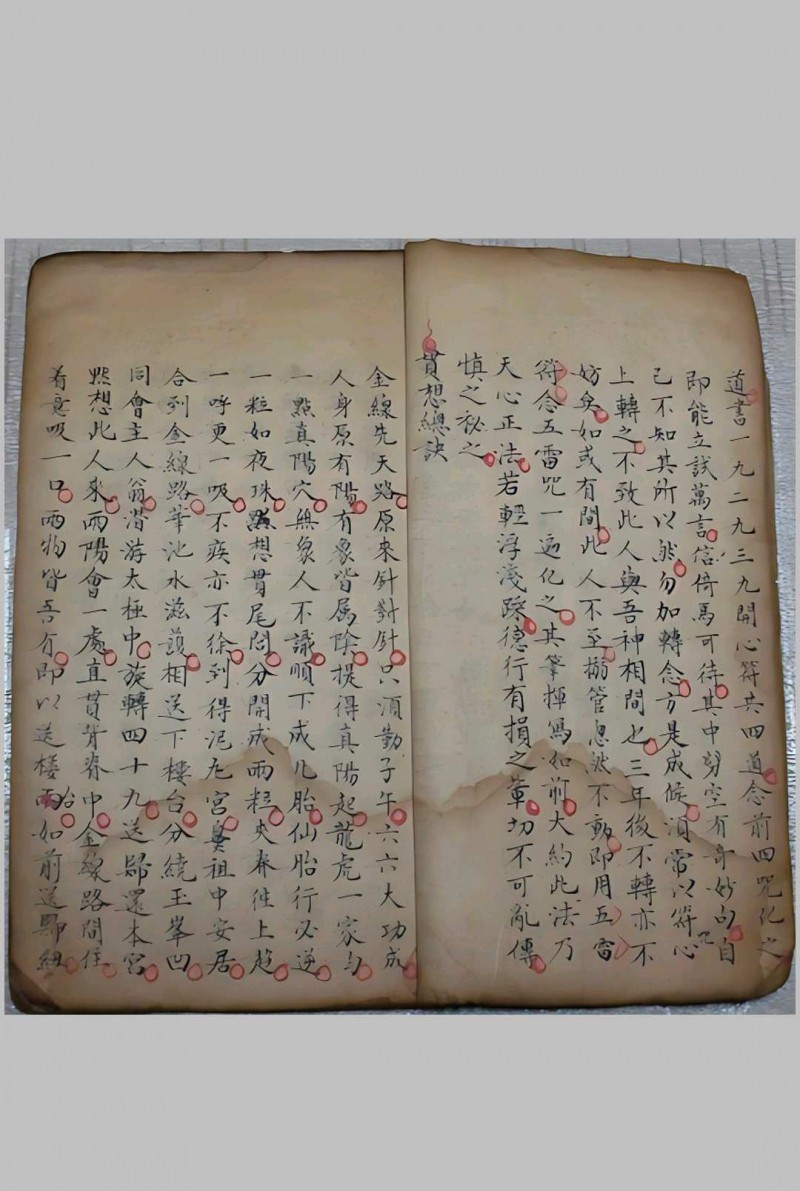 道書一九二九三九開心符共四道念前四咒化之
即能立試萬言信倚馬可待其中剪空有奇妙句自
己不知其所以然勿加轉念方是成候須常以符心咒
上轉之不致此人與吾神相間也三年後不轉亦不
妨矣如或有間此人不至搦管忽然不動即用五雷
符念五雷咒一遍化之其筆揮寫如前大約此法乃
天心正法若輕浮淺躁德行有損之輩切不可亂傳
慎之秘之
貫想總訣
金線先天路原來針對針只須勤子午六六大功成
人身原有陽有象皆属陰提得真陽起龍虎一家与
一點真陽穴無象人不識順下成凡胎仙胎行必逆
一粒如夜珠黙想貫尾閭分開成兩粒夾脊往上趋
一呼更一吸不疾亦不徐到得泥丸宮與祖中安居
合到金線路華池水滋護相送下樓台分繞玉峯凹
同會主人翁潜游太極中旋轉四十九送歸還本宮
黙想此人來兩陽會一處直貫背脊中金線路間住
着意吸一口兩物皆吾有即以送樓台兩如前送歸紐